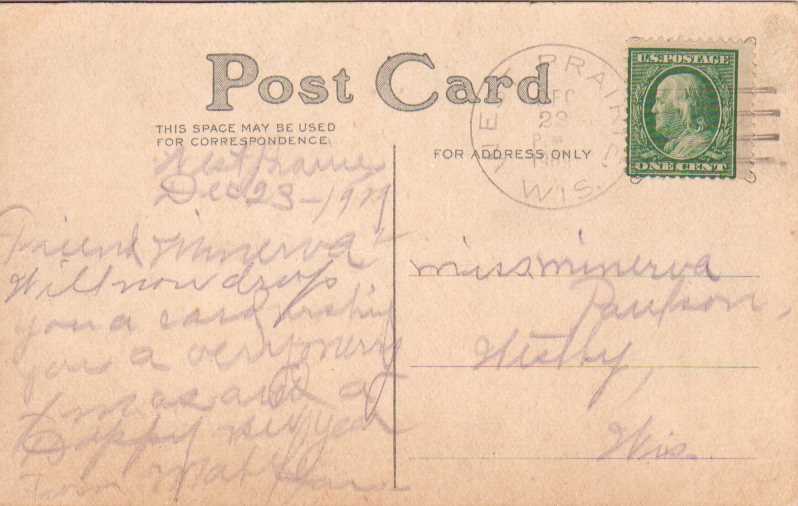 Post Card
THIS SPACE MAY BE USED
FOR CORRESPONDENCE
FOR ADDRESS ONLY
WEST PRAIRIE
DEC
23
WIS.
U.S. POSTAGE
ONE CENT
West Prairie
Dec 23-19
Friend Minerva
Will now drop
you a card wishing
you a very merry
Xmas and a
Happy new year
From
miss minerva
Paulson,
Westby,
Wis.